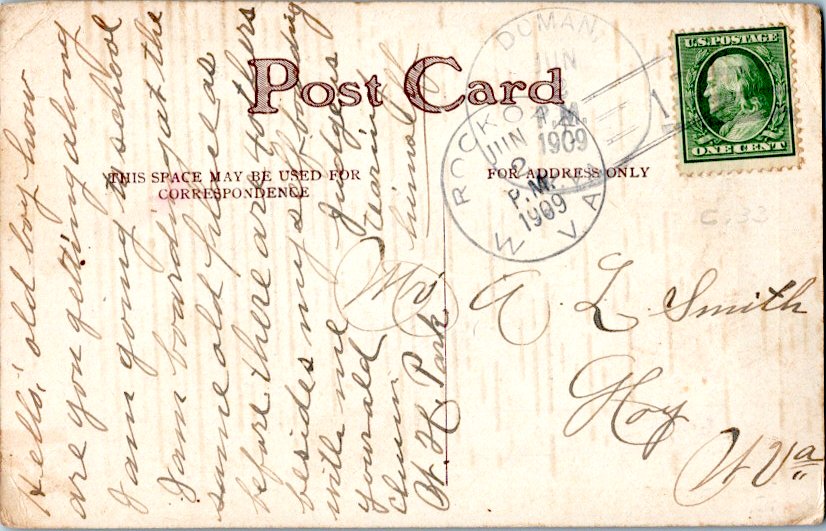 Post Card
THIS SPACE MAY BE USED FOR
CORRESPONDENCE
FOR ADDRESS ONLY
U.S. POSTAGE
ONE CENT
DOMAN,
JUN
P.M.
1909
W. VA
1
ROCKOAK
JUN
2
P.M.
1909
W. VA
C.33
Hello, old boy how
are you getting along
I am going to school
I am boarding at the
same old place as
before there are others
besides myself boarding
with me
your old
chum
W H Park
Judge is
himself
Mr A. L. Smith
Hoy
W Va